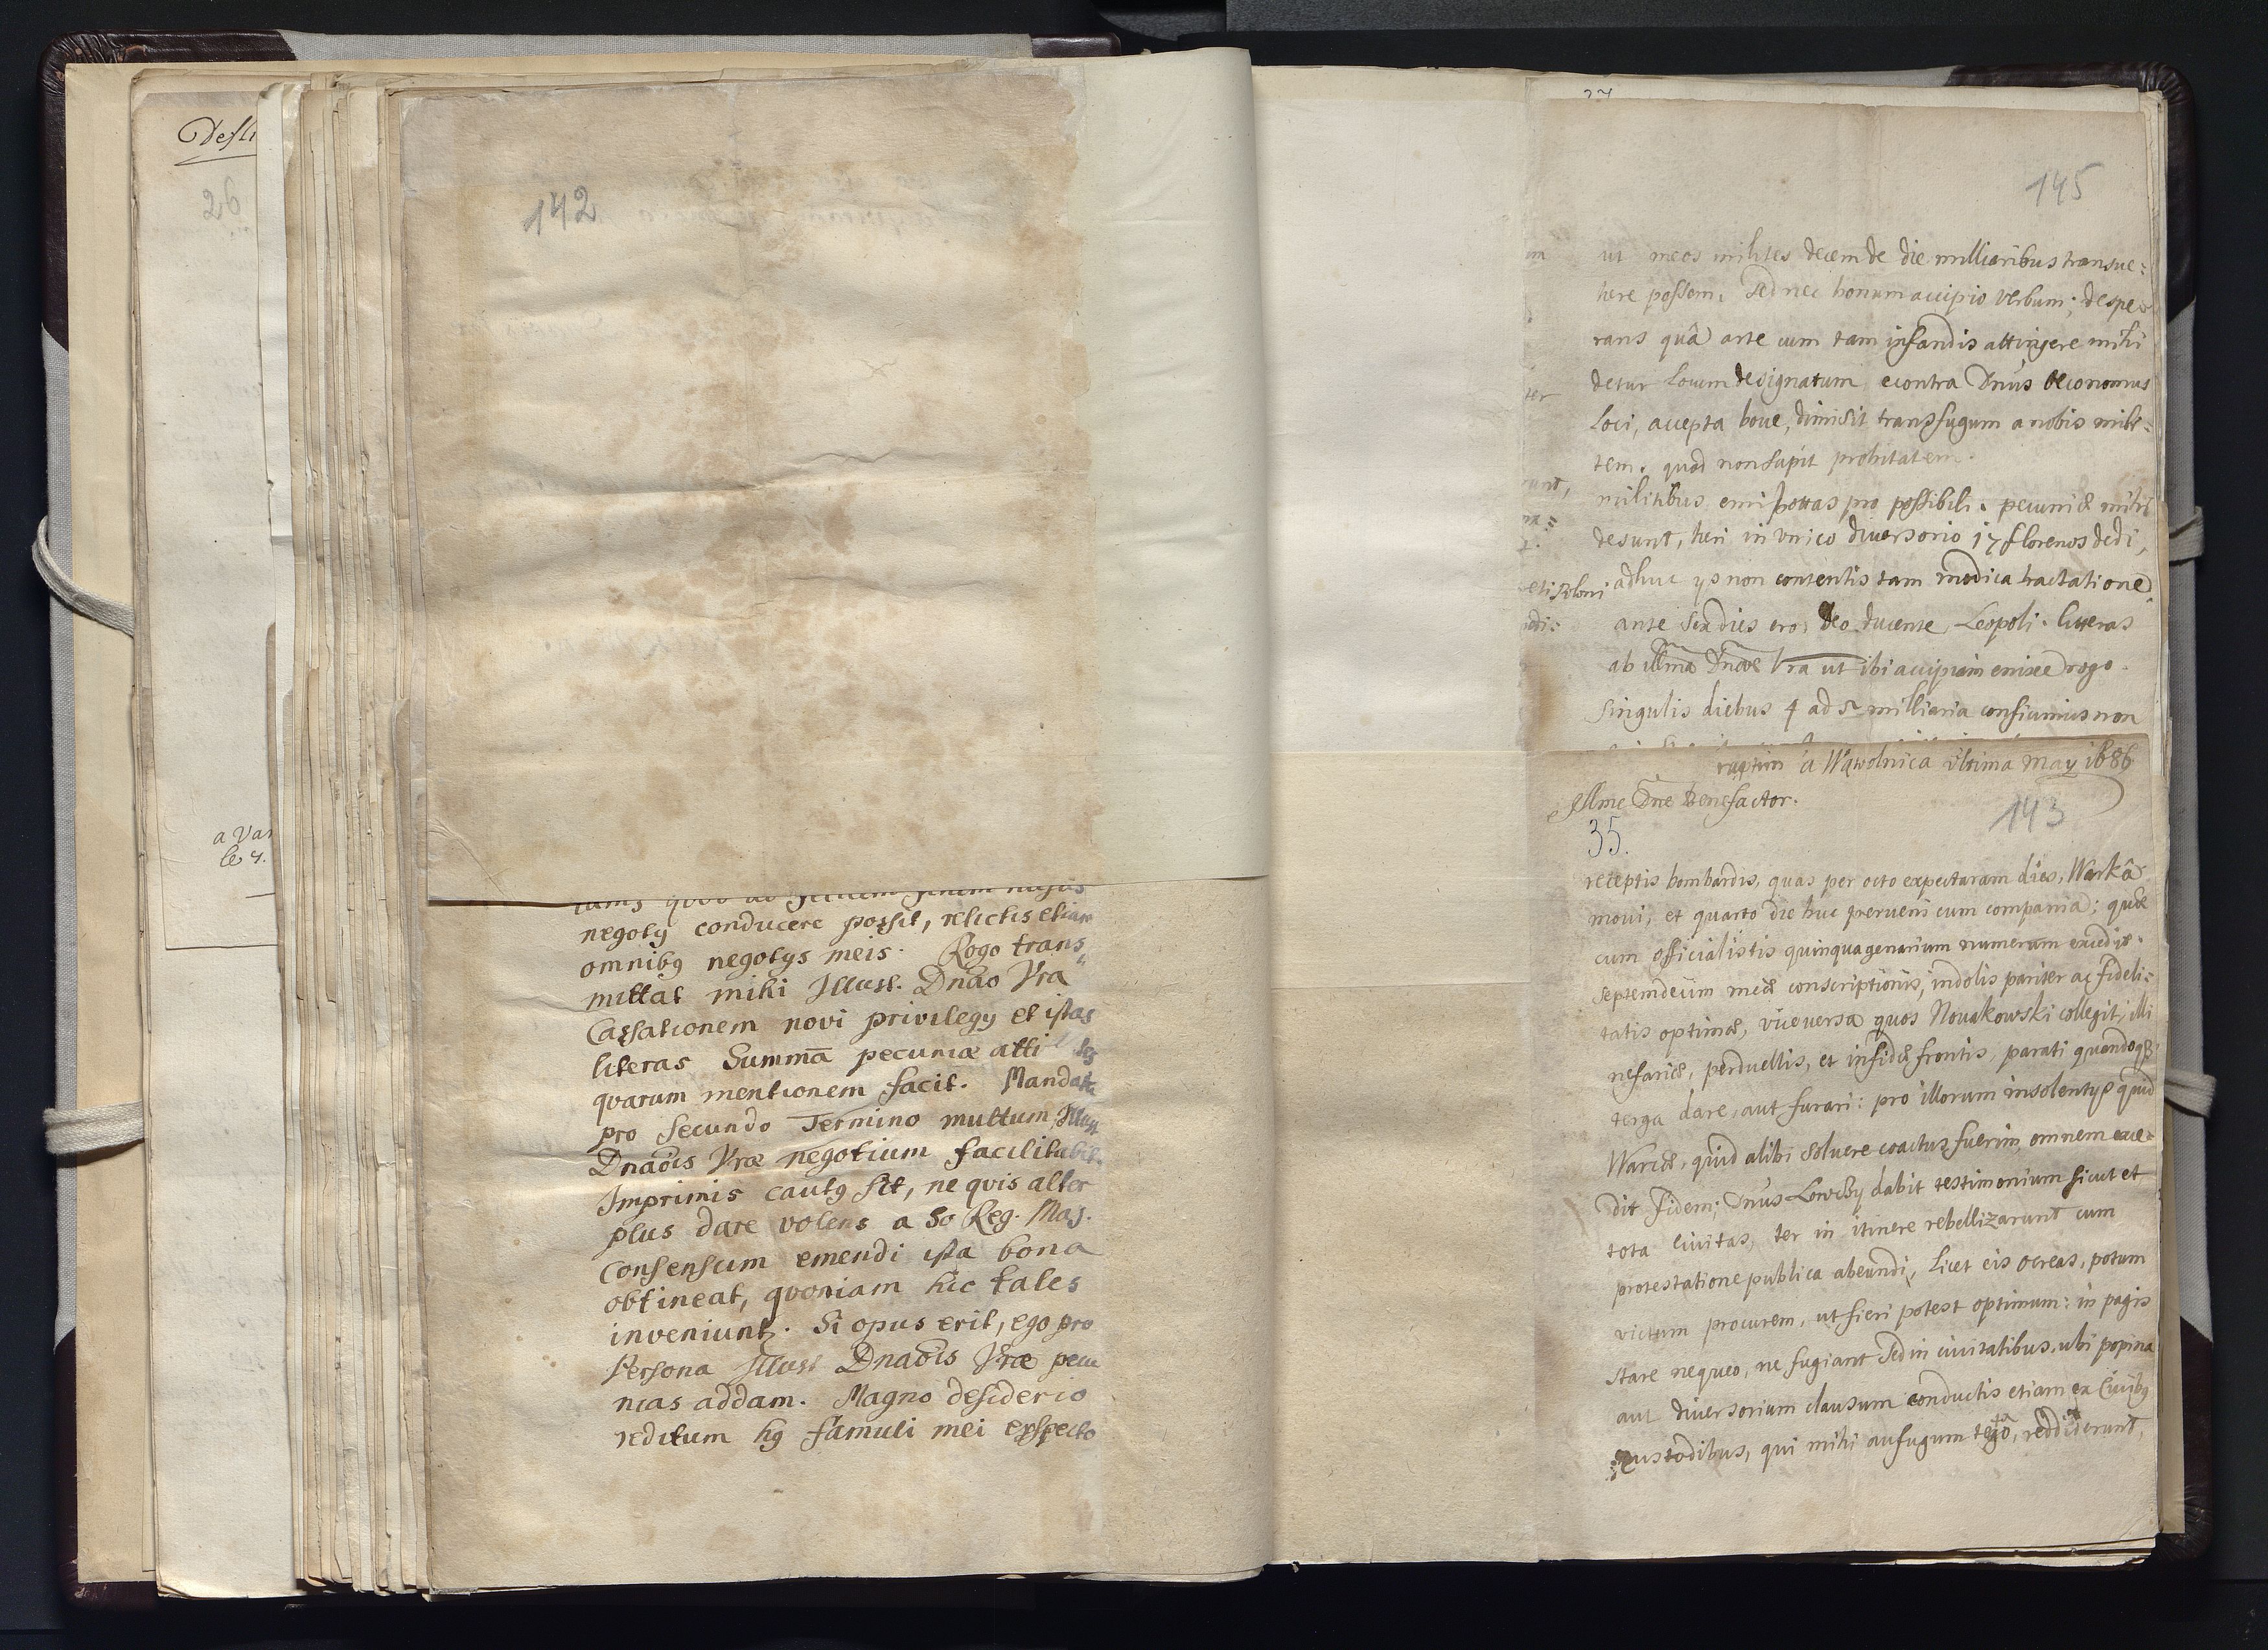 Desti
26
a Var
le 4.
142
negoty conducere possit, relictis etiam
omnibq negotys meis. Rogo trans„
mittat mihi Illust. Dnao Vra
Cassationem novi privilegy et istas
literas Summā pecuniæ atti
qvarum mentionem facit. Mandata
pro Secundo Termino multum Illust
Dnaōis Vræ negotium facilitabit.
Imprimis cautq sit, ne qvis alter
plus dare volens a So Reg. Maj.
Consensum emendi ista bona
obtineat, qvoniam hic tales
inveniunt. Si opus erit, ego pro
Persona Illust Dnaōis Vræ pecu
nias addam. Magno desiderio
reditum hq famuli mei exspecto
27
145
ut meos milites decem de die milliaribus transue:
here possem. Sed nec bonum accipio verbum; despe-
rans quâ arte cum tam infandis attingere mihi
detur Locum designatum, econtra Dnūs Oeconomus
Loci, accepta boue, dimisit transfugum a nobis mili:
tem. quod non sapit probitatem.
militibus emi pottas pro possibili. pecuniæ mihi
desunt, heri in vnico diuersorio 17 florenos dedi,
adhuc ys non contentis tam modica tractatione.
ante sex dies ero, Deo ducente, Leopoli. litteras
ab Illma Dnaoe Vra ut ibi accipiam enixe rogo.
Singulis diebus 4 ad 5 milliaria conficimus non
raptim à Wąwolnica vltima May 1686
Illme Dne Benefactor.
143
35.
receptis bombardis, quas per octo expectaram dies, Warkâ
moui, et quarto die huc perueni cum compania; quæ
cum officialistis quinquagenarium numerum excedit.
septemdecim meæ conscriptionis, indolis pariter ac fideli:
tatis optimæ, viceuersa quos Nouakowski collegit, illi
nefariæ, perduellis, et infidæ frontis, parati quandoqȝ
terga dare, aut furari: pro illorum insolentys quid
Warcæ, quid alibi soluere coactus fuerim, omnem exce-
dit fidem; Dnūs Lowczy dabit testimonium sicut et
tota ciuitas, ter in itinere rebellizarunt cum
protestatione publica abeundi, licet eis ocreas, potum
victum procurem, ut fieri potest optimum: in pagis
stare nequeo, ne fugiant Sed in ciuitatibus, ubi popina
aut diuersorium clausum conductis etiam ex Ciuibq
custodibus, qui mihi aufugum reddiderunt,